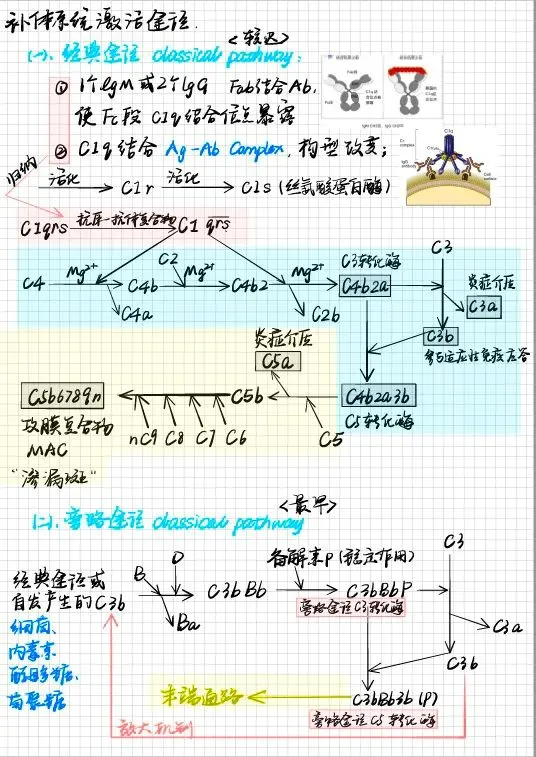 补体系统激活途径.
<较迟>
(一). 经典途径 classical pathway:
① 1个IgM或2个IgG Fab结合Ab,
使Fc段C1q结合位点暴露
② C1q结合 Ag-Ab Complex, 构型改变;
归纳
活化 C1r 活化 C1s (丝氨酸蛋白酶)
C1qrs 抗原-抗体复合物 C1 qrs
C4 Mg2+ C4b C2 Mg2+ C4b2 Mg2+ C3转化酶 C4b2a C3
C4a C2b 炎症介质 C3a
C3b
参与适应性免疫应答
炎症介质
C5a
C5b6789n C5b C4b2a3b
C5转化酶
攻膜复合物 nC9 C8 C7 C6 C5
MAC
"渗漏斑"
<最早>
(二). 旁路途径 classical pathway
备解素P (稳定作用) C3
经典途径或 B D
自发产生的C3b C3bBb C3bBbP
旁路途径C3转化酶
Ba C3a
细菌、
内毒素
酵母多糖、
葡聚糖
C3b
末端通路 C3bBb3b (P)
放大机制 旁路途径C5转化酶